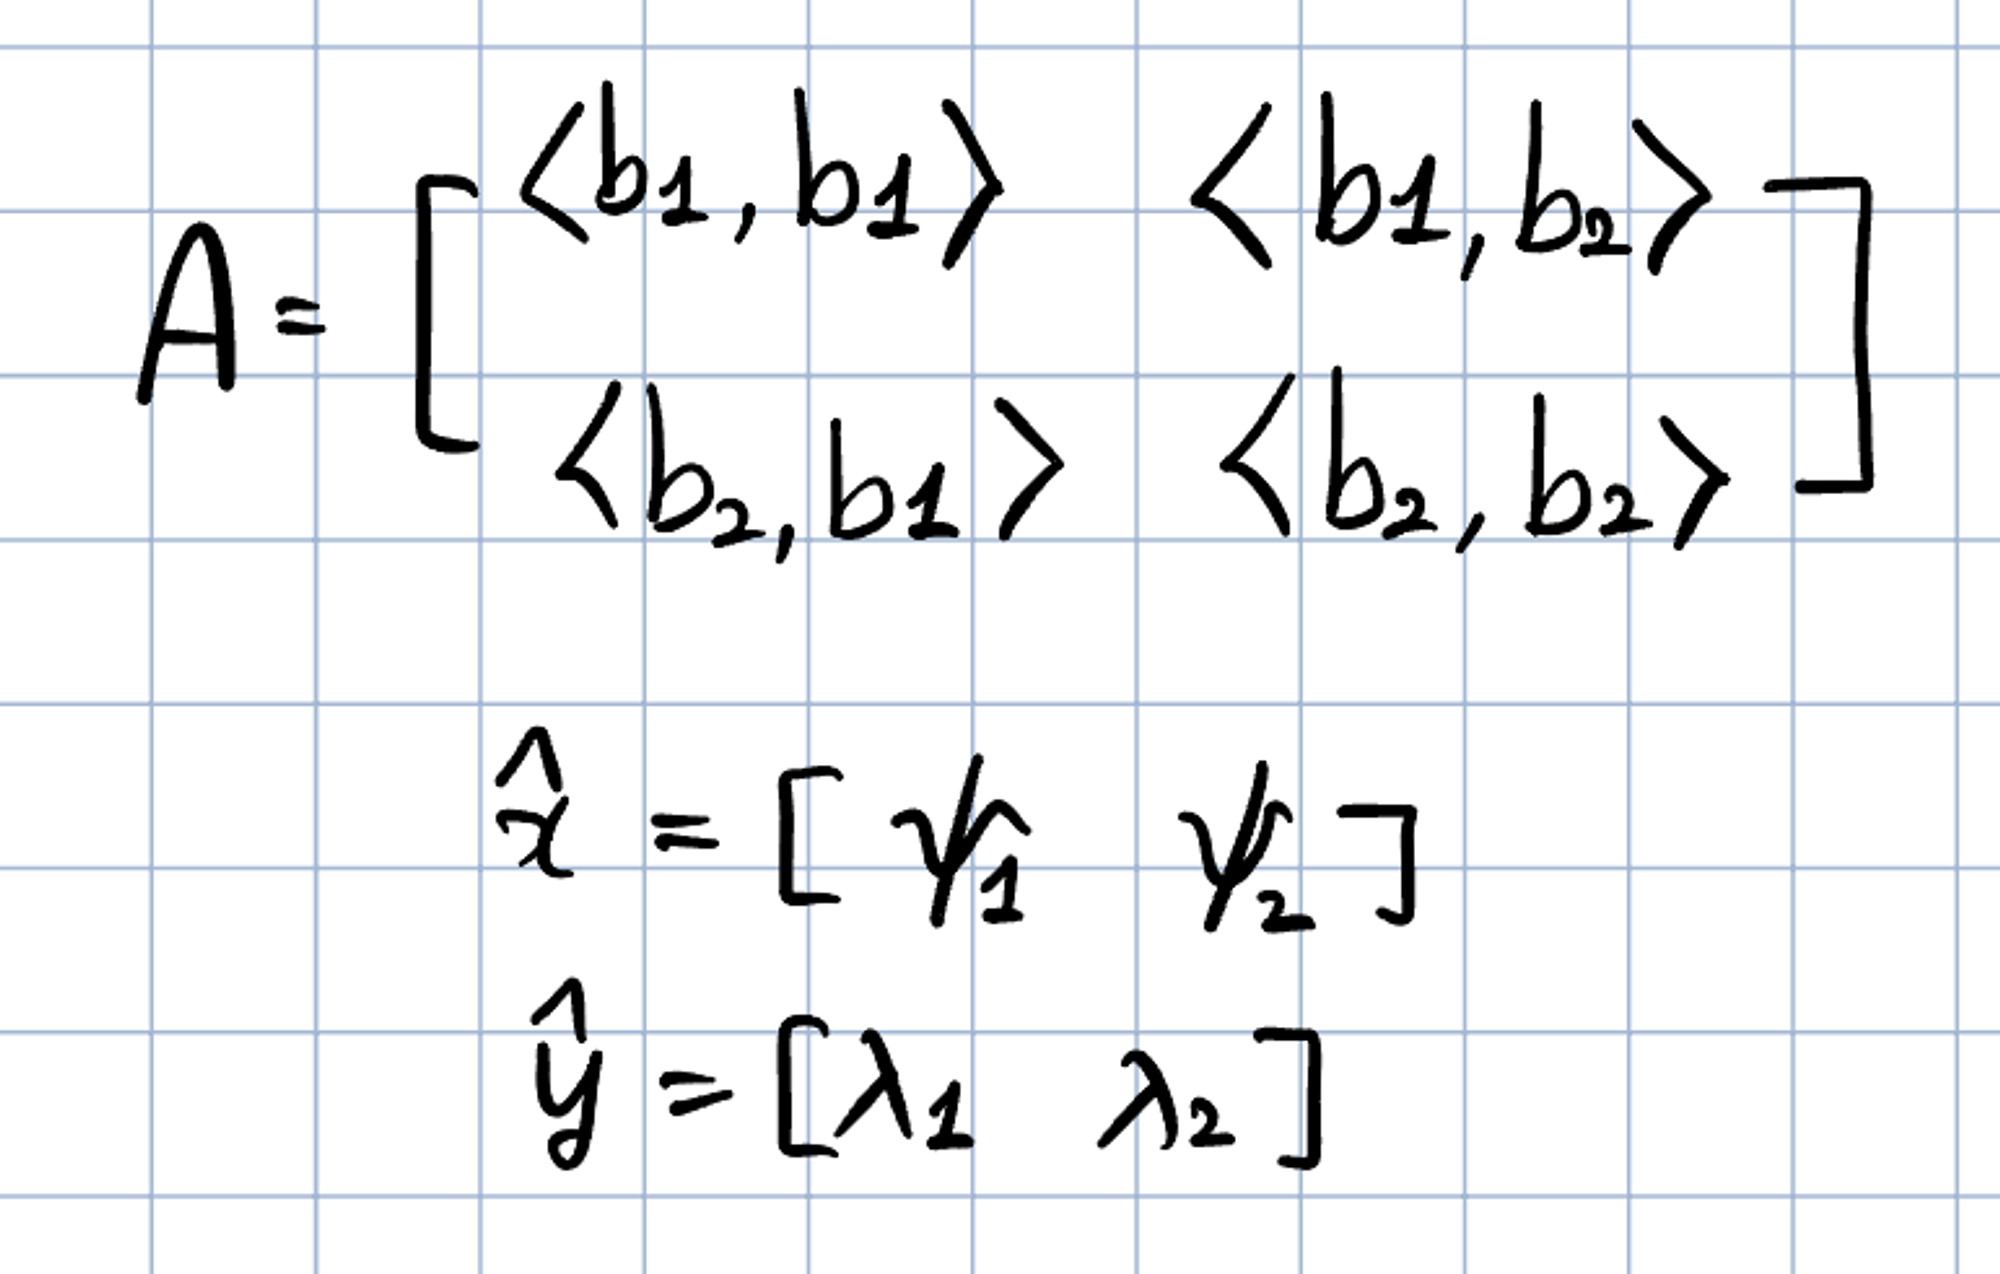 A = [ ⟨b₁, b₁⟩ ⟨b₁, b₂⟩
⟨b₂, b₁⟩ ⟨b₂, b₂⟩ ]
x̂ = [ ψ₁ ψ₂ ]
ŷ = [ λ₁ λ₂ ]